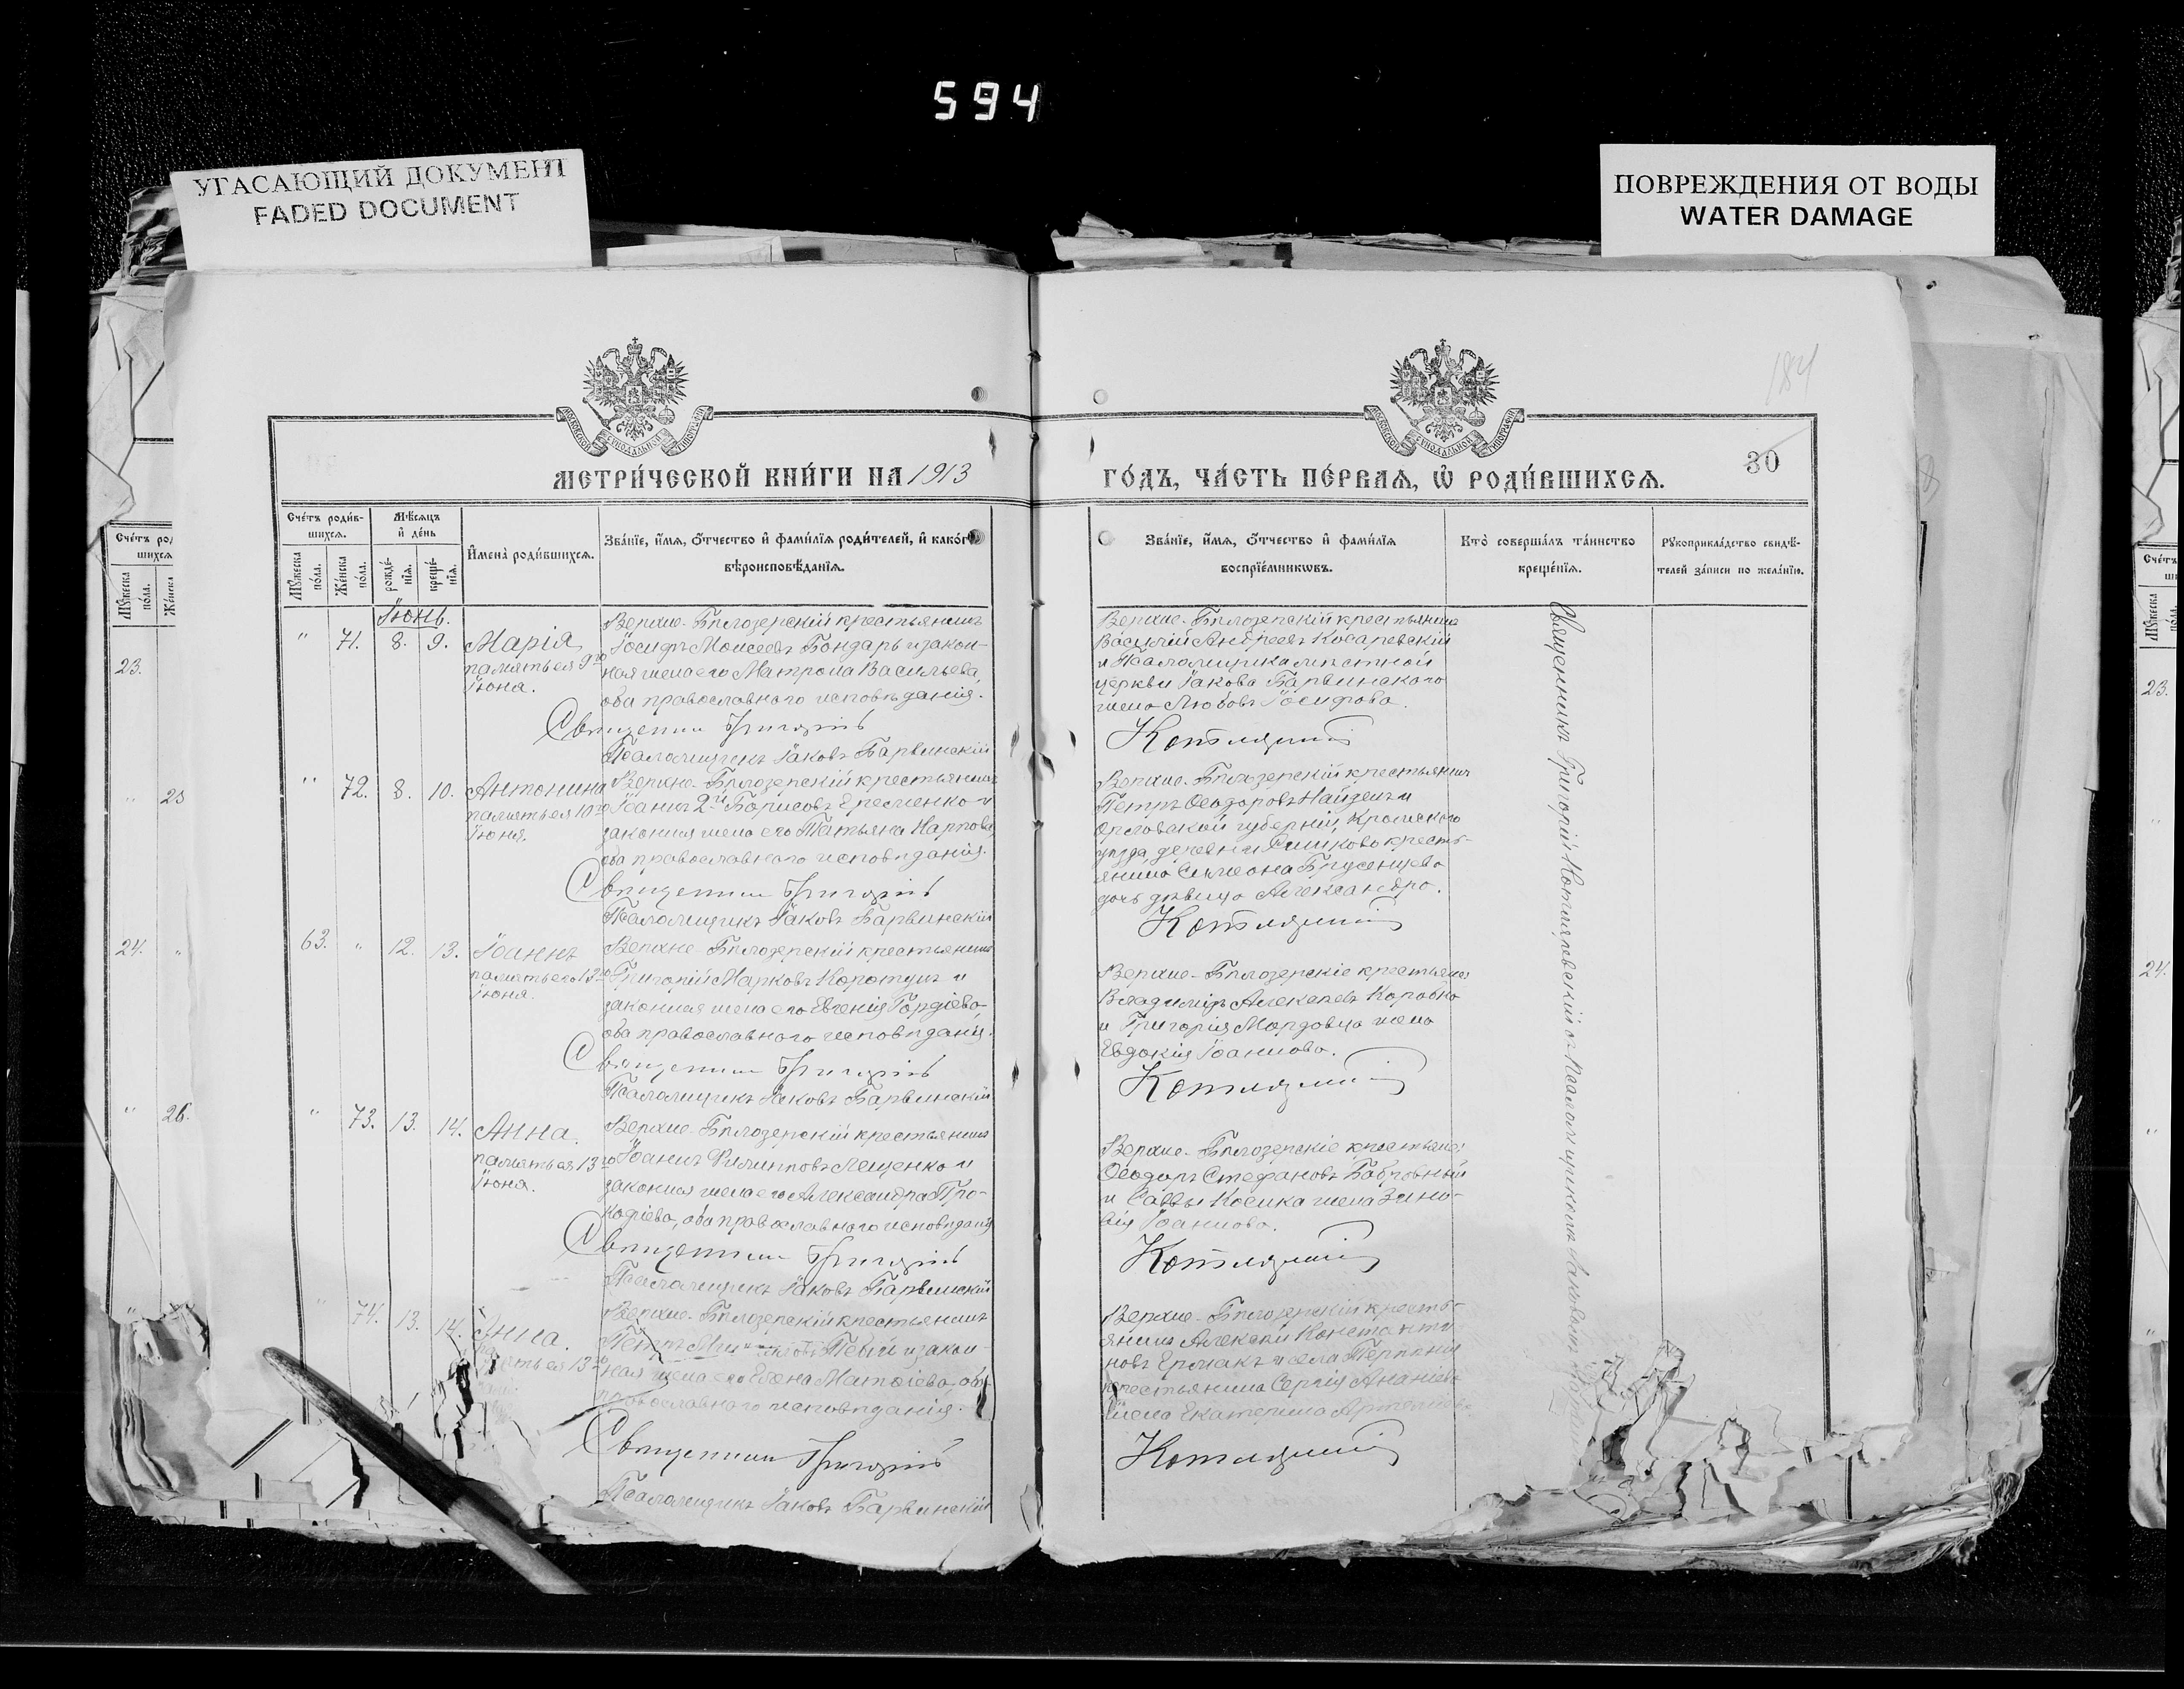 594
УГАСАЮЩИЙ ДОКУМЕНТ
FADED DOCUMENT
ПОВРЕЖДЕНИЯ ОТ ВОДЫ
WATER DAMAGE
184
30
МЕТРИ́ЧЕСКОЙ КНИ́ГИ НА 1913
ГО́ДЪ, ЧА́СТЬ ПЕ́РВАѦ, Ѡ҆ РОДИ́ВШИХСѦ.
Сче́тъ роди́в-
шихсѧ.
Мѣ́сѧцъ
и҆ де́нь
Мꙋ́жеска
по́ла.
Же́нска
по́ла.
рожде́-
нїѧ.
креще́-
нїѧ.
И҆мена̀ роди́вшихсѧ.
Зва́нїе, и҆́мѧ, ѻ҆́тчество и҆ фами́лїѧ роди́телей, и҆ како́гѡ
вѣроисповѣ́данїѧ.
Зва́нїе, и҆́мѧ, ѻ҆́тчество и҆ фами́лїѧ
воспрїе́мникѡвъ.
Кто̀ соверша́лъ та́инство
креще́нїѧ.
Рꙋкоприкла́дство свидѣ́-
телей за́писи по жела́нїю.
Іюнь.
" 71. 8. 9. Марія
память ея 9го
Іюня.
Верхне-Бѣлозерскій крестьянинъ
Іосифъ Моисеевъ Бондарь и закон-
ная жена его Матрона Васильева,
оба православнаго исповѣданія.
Священникъ Григорій
Псаломщикъ Іаковъ Барвинскій
Верхне-Бѣлозерскій крестьянинъ
Василій Андреевъ Косаревскій
и Псаломщика мѣстной
церкви Іакова Барвинскаго
жена Любовь Іосифова.
Котляревскій
" 72. 8. 10. Антонина
память ея 10го
Іюня.
Верхне-Бѣлозерскій крестьянинъ
Іоаннъ 2й Борисовъ Ересменко и
законная жена его Татьяна Карпова,
оба православнаго исповѣданія.
Священникъ Григорій
Псаломщикъ Іаковъ Барвинскій
Верхне-Бѣлозерскій крестьянинъ
Петръ Ѳеодоровъ Найденъ и
Орловской губерніи, Кромскаго
уѣзда, деревни кресть-
янина Симеона
дочь дѣвица Александра.
Котляревскій
63. " 12. 13. Іоаннъ
память его 13го
Іюня.
Верхне-Бѣлозерскій крестьянинъ
Григорій Марковъ Коротунъ и
законная жена его Евгенія Гордіева,
оба православнаго исповѣданія.
Священникъ Григорій
Псаломщикъ Іаковъ Барвинскій
Верхне-Бѣлозерскіе крестьяне:
Владиміръ Алексѣевъ Коровко
и Григорія Мордовца жена
Евдокія Іоаннова.
Котляревскій
" 73. 13. 14. Анна.
память ея 13го
Іюня.
Верхне-Бѣлозерскій крестьянинъ
Іоаннъ Филипповъ Лещенко и
законная жена его Александра Про-
кофіева, оба православнаго исповѣданія
Священникъ Григорій
Псаломщикъ Іаковъ Барвинскій
Верхне-Бѣлозерскіе крестьяне:
Ѳеодоръ Стефановъ Бобровный
и Саввы Косика жена Зино-
вія Іоаннова.
Котляревскій
" 74. 13. 14. Анна.
память ея 13го
Верхне-Бѣлозерскій крестьянинъ
Петръ и закон-
ная жена его Елена Матвіева, оба
православнаго исповѣданія.
Священникъ Григорій
Псаломщикъ Іаковъ Барвинскій
Верхне-Бѣлозерскій кресть-
янинъ Алексѣй Константи-
новъ Ермакъ и села Терпѣнія
крестьянина Сергія Ананіева
жена Екатерина
Котляревскій
Священникъ Григорій Котляревскій съ Псаломщикомъ Іаковомъ
Мꙋ́жеска
по́ла.
23.
25
24.
26.
23.
24.